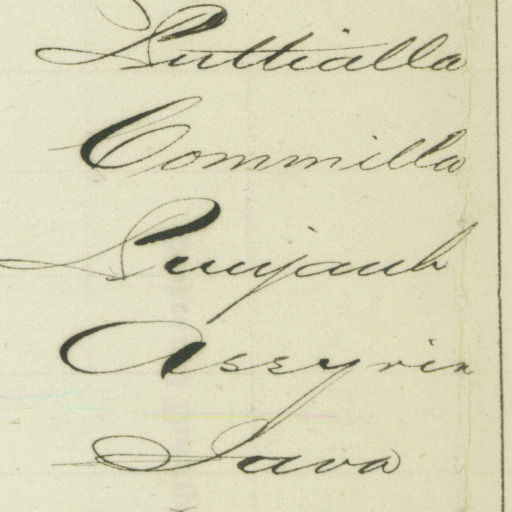 Puttialla
Commilla
Punjaub
Assyria
Java